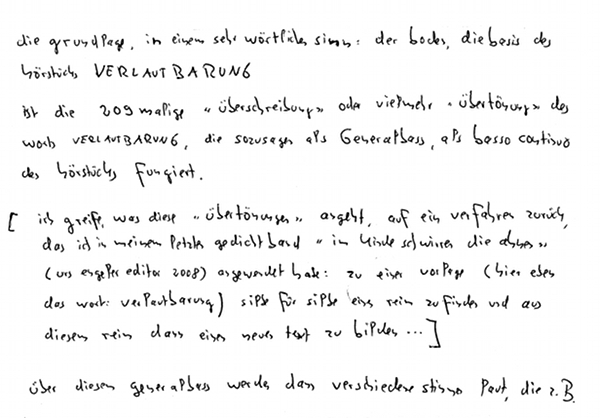 die grundlage, in einem sehr wörtlichen sinn: der boden, die basis des
hörstücks VERLAUTBARUNG
ist die 209 malige «überschreibung» oder vielmehr «übertönung» des
worts VERLAUTBARUNG, die sozusagen als Generalbass, als basso continuo
des hörstücks fungiert.
[ ich greife, was diese «übertönungen» angeht, auf ein verfahren zurück,
das ich in meinem letzten gedichtband «im hinde schwirren die ahnen»
(urs engeler editor 2008) angewendet habe: zu einer vorlage (hier eben
das wort: verlautbarung) silbe für silbe einen reim zu finden und aus
diesem reim dann einen neuen text zu bilden ... ]
über diesem generalbass werden dann verschiedene stimmen laut, die z.B.